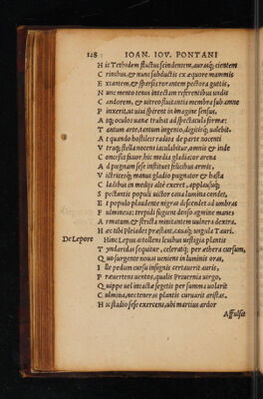 128 IOAN. IOV. PONTANI
H ic Tethidem fluctus scindentem, auraq; cientem
C rinibus, & nunc subductis ex æquore mammis
E xtantem, & sparsis rorantem pectora guttis,
N unc mento tenus intectam referentibus undis
C andorem, & uitreo fluitantia membra sub amne
P inxerit, ut uiua spirent in imagine sensus,
A tq; oculos uanæ trahat ad spectacula formæ:
T antum arte, tantum ingenio, digitisq; ualebit.
A t quando hostiles radens de parte nouenti
V traq; stella nocens iaculabitur, amnis & inde
C oncessi fauor, hic media gladiator arena
A d pugnam sese instituet felicibus armis,
V ictriceq; manus gladio pugnator & hasta
C ladibus in medijs alte exeret, applausuq;
S pectantis populi uictor caua lumina condet,
E t populo plaudente nigras descendet ad umbras
P ulmineas: trepidi sugient denso agmine manes
A rmatum, & stricta minitantem uulnera dextra.
H æc tibi Pleiades præstant, cauaq; ungula Tauri.
De Lepore Hinc Lepus attollens leuibus uestigia plantis
T yndaridas sequitur, celeratq; per æthera cursum,
Q uo surgente nouus ueniens in luminis oras,
I lle pedum cursu insignis certauerit auris,
P ræuertens uentos, qualis Prœuernia uirgo,
Q uippe uel intacta segetis per summa uolarit
C ulmina, nec teneras plantis curuarit aristas.
H ic stadio sese exercens, ubi martius ardor
Affulsit